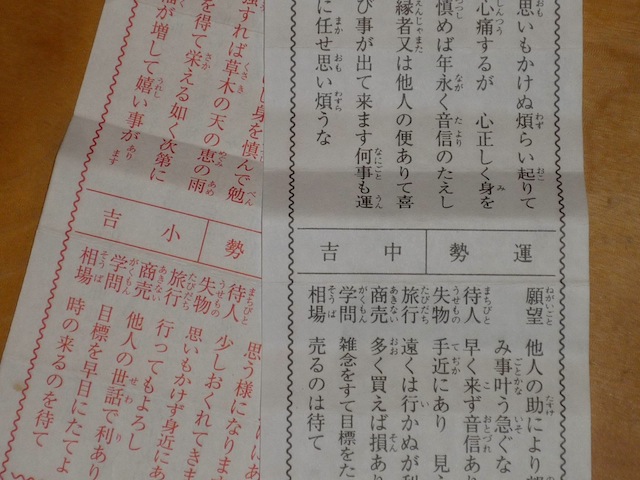 思いもかけぬ煩らい起りて
心痛するが 心正しく身を
慎めば年永く音信のたえし
縁者又は他人の便ありて喜
び事が出て来ます何事も運
に任せ思い煩うな
運勢 中吉
願望 他人の助により
み事叶う急ぐな
待人 早く来ず音信あ
失物 手近にあり 見
旅行 遠くは行かぬが利
商売 多く買えば損あ
学問 雑念をすて目標をた
相場 売るのは待て
し身を慎んで勉
強すれば草木の天の恵の雨
を得て栄える如く次第に
が増して嬉い事があります
勢 小吉
思う様になります
待人 少しおくれてきま
失物 思いもかけず身近にあ
旅行 行ってもよろし
商売 他人の世話で利あり
学問 目標を早目にたてよ
相場 時の来るのを待て